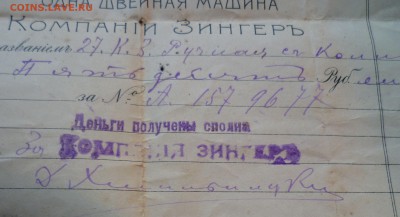 COINS.LAVE.RU
ШВЕЙНАЯ МАШИНА
КОМПАНІИ ЗИНГЕРЪ
названіемъ 27. К. 3. Ручная съ
Пятьдесятъ Рубл
за № А 1579677
Деньги получены сполна
За КОМПАНІЯ ЗИНГЕРЪ